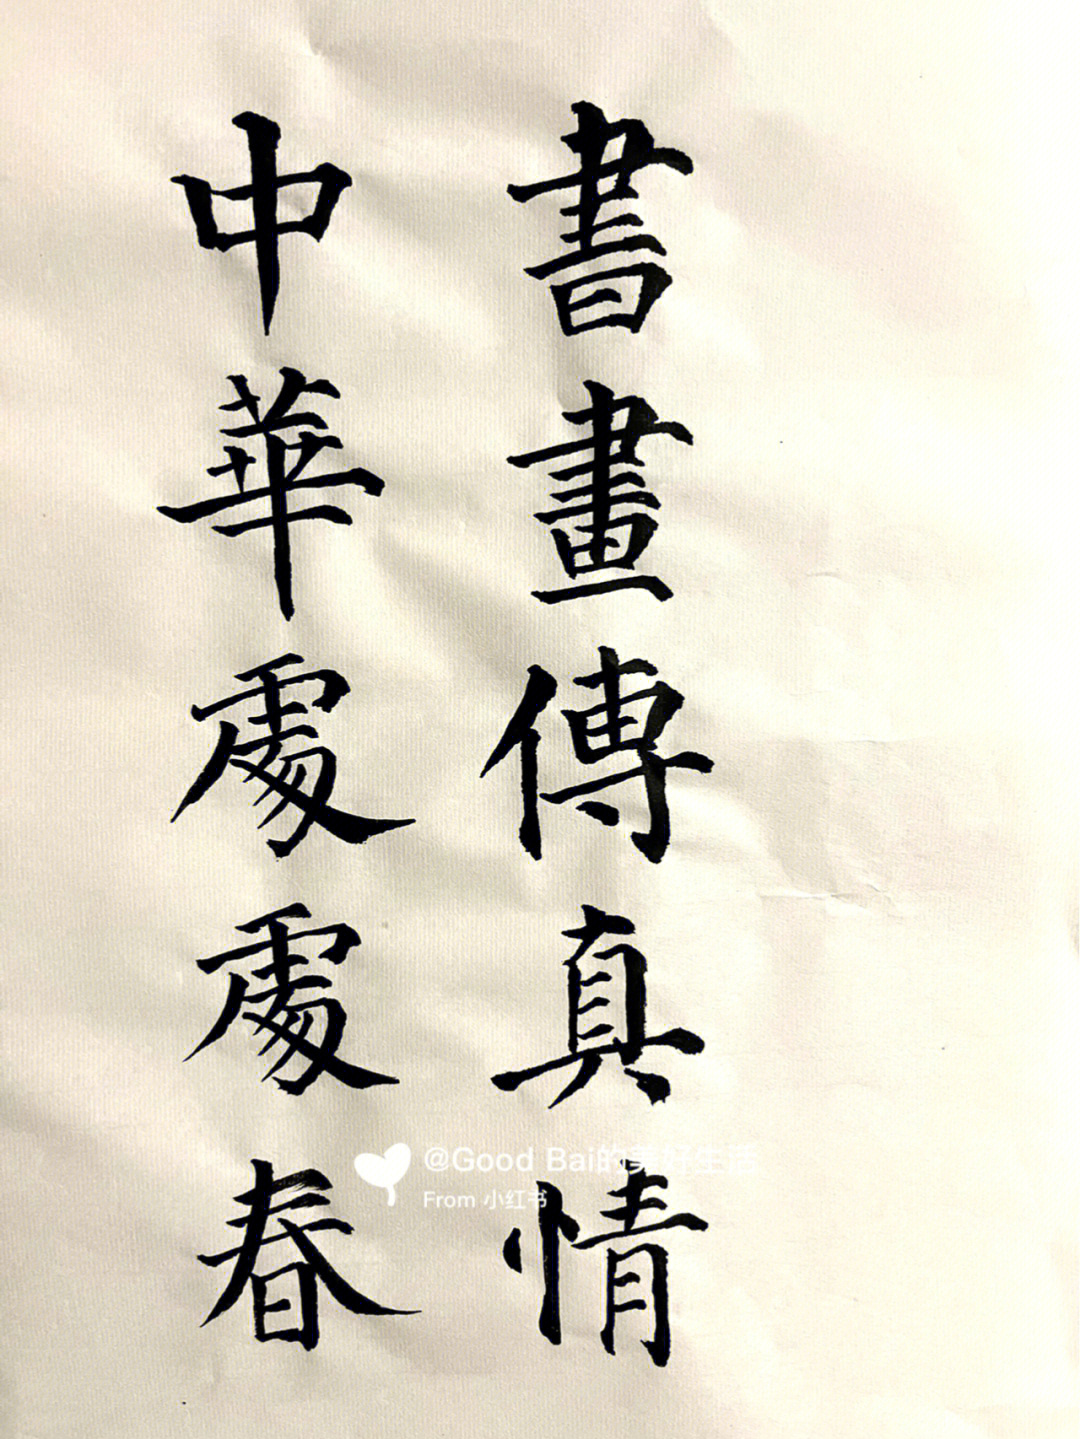 書畫傳真情
中華處處春
@Good Bai的美好生活
From 小红书